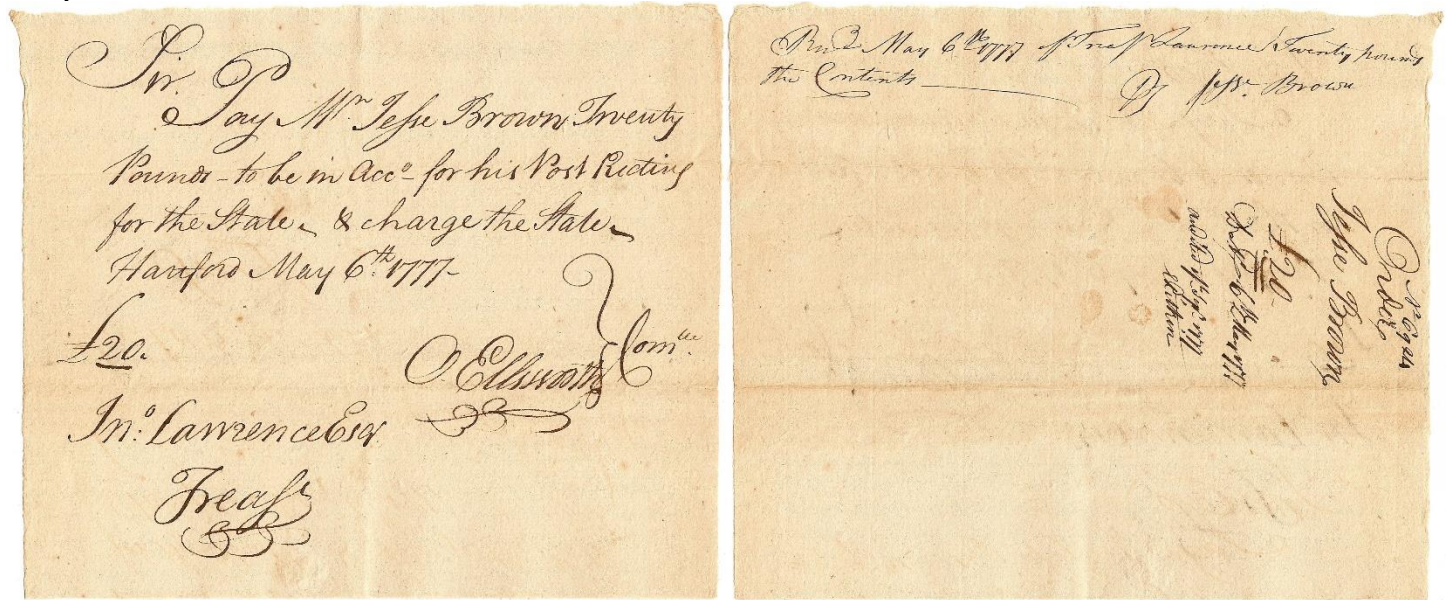 Sir.
Pay Mr. Jesse Brown Twenty
Pounds - to be in Acco. for his Post Riding
for the State - & charge the State -
Hartford May 6th. 1777 -
£20.
O Ellsworth } Comtee.
Jno: Lawrence Esqr
Treasr
Recd May 6th 1777 of Treasr Lawrence Twenty pounds
the Contents
Pr Jesse Brown
Order
Jesse Brown
£20
May 1777